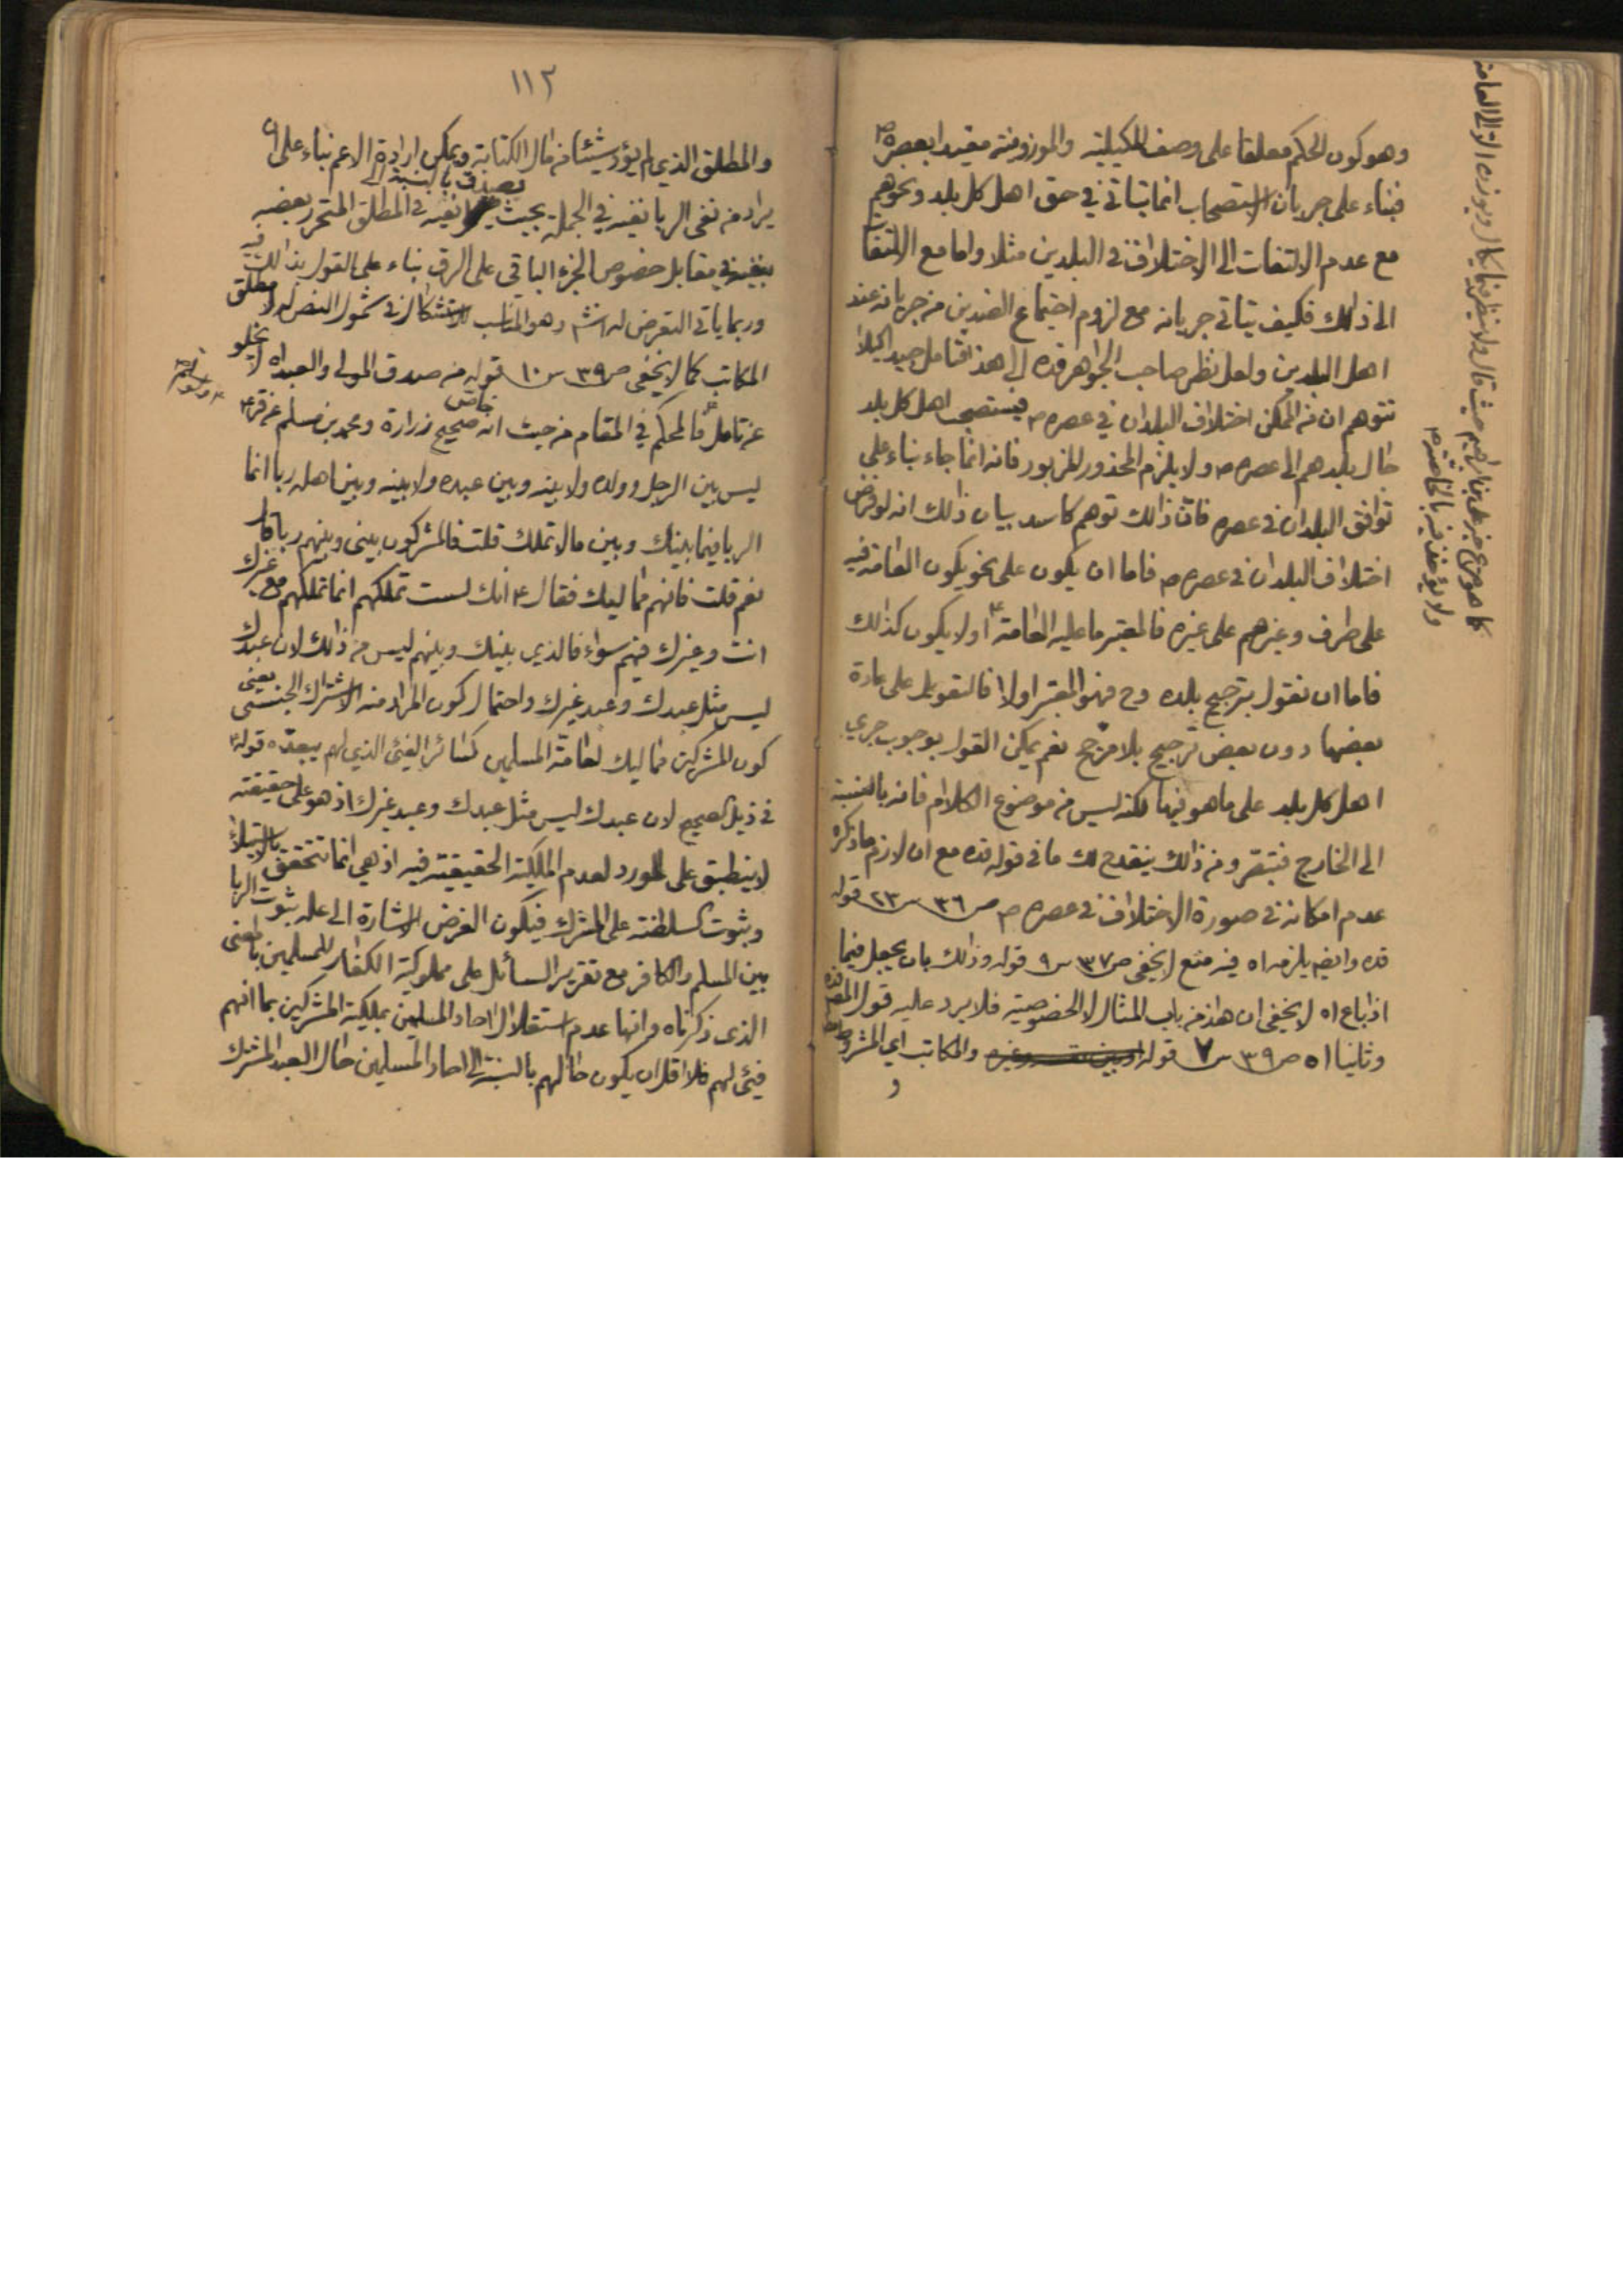 وهو كون الحكم معلقا على وصف المكيلية والموزونية مقيدا بعصره ص
فبناء على جريان الاستصحاب انما يتاتى في حق اهل كل بلد ونحوهم
مع عدم الالتفات الى الاختلاف في البلدين مثلا واما مع الالتفات
الى ذلك فكيف يتاتى جريانه مع لزوم اجتماع الضدين من جريانه عند
اهل البلدين ولعل نظر صاحب الجواهر قده الى هذا فتامل جيدا كيلا
تتوهم ان من الممكن اختلاف البلدان في عصره ص فيستصحب اهل كل بلد
حال بلدهم الى عصره ص ولا يلزم المحذور المزبور فانه انما جاء بناء على
توافق البلدان في عصره فان ذالك توهم كاسد بيان ذالك انه لو فرض
اختلاف البلدان في عصره ص فاما ان يكون على نحو يكون العامة فيه
على طرف وغيرهم على غيره فالمعتبر ما عليه العامة او لا يكون كذالك
فاما ان نقول بترجيح بلده وح فهو المعتبر اولا فالتعويل على عادة
بعضها دون بعض ترجيح بلا مرجح نعم يمكن القول بوجوب جري
اهل كل بلد على ما هو فيها لكنه ليس من موضوع الكلام فانه بالنسبة
الى الخارج فتبصر ومن ذالك ينقدح لك ما في قوله قده مع ان لازم ما ذكره
عدم امكانه في صورة الاختلاف في عصره ص ص ٣٦ س ٢٣ قوله
قده وايضا يلزمه اه فيه منع لا يخفى ص ٣٧ س ٩ قوله وذالك بان يجعل فيما
اذا باع اه لا يخفى ان هذا من باب المثال لا الخصوصية فلا يرد عليه قول المص قده
وثانيا اه ص ٣٩ س ٧ قوله والمكاتب اي المشروط
و
كما هو صريح خبر علي بن ابراهيم حيث قال ولا ينظر فيما يكال ويوزن الا الى العامة
ولا يؤخذ فيه بالخاصة
١١٢
والمطلق الذي لم يؤد شيئا من مال الكتابة ويمكن ارادة الاعم بناء على ان
يراد من نفي الربا نفيه في الجملة بحيث يصدق بالنسبة الى نفيه في المطلق المتحرر بعضه
بنفيه في مقابل خصوص الجزء الباقي على الرق بناء على القول بذالك فيه
وربما ياتي التعرض له وهو المناسب للاستشكال في شمول النص له لا مطلق
المكاتب كما لا يخفى ص ٣٩ س ١٠ قوله من صدق المولى والعبد اه لا يخلو
عن تامل فالمحكم في المقام من حيث انه خاص صحيح زرارة ومحمد بن مسلم
ليس بين الرجل وولده ولا بينه وبين عبده ولا بينه وبين اهله ربا انما
الربا فيما بينك وبين مالا تملك قلت فالمشركون بيني وبينهم ربا قال
نعم قلت فانهم مماليك فقال ع انك لست تملكهم انما تملكهم مع غيرك
انت وغيرك فيهم سواء فالذي بينك وبينهم ليس من ذالك لان عبدك
ليس مثل عبدك وعبد غيرك واحتمال كون المراد منه الاشتراك الجنسي يعني
كون المشركين مماليك لعامة المسلمين كسائر الفيئ الذي لهم يبعده قوله ع
في ذيل الصحيح لان عبدك ليس مثل عبدك وعبد غيرك اذ هو على حقيقته
لا ينطبق على المورد لعدم الملكية الحقيقية فيه اذ هي انما تتحقق بالاستيلاء
وثبوت السلطنة على المشرك فيكون الغرض الاشارة الى علة ثبوت الربا
بين المسلم والكافر مع تقرير السائل على مملوكية الكفار للمسلمين بالمعنى
الذي ذكرناه وانها عدم استقلال احاد المسلمين بملكية المشركين بما انهم
فيئ لهم فلا اقل ان يكون حالهم بالنسبة الى احاد المسلمين حال العبد المشترك